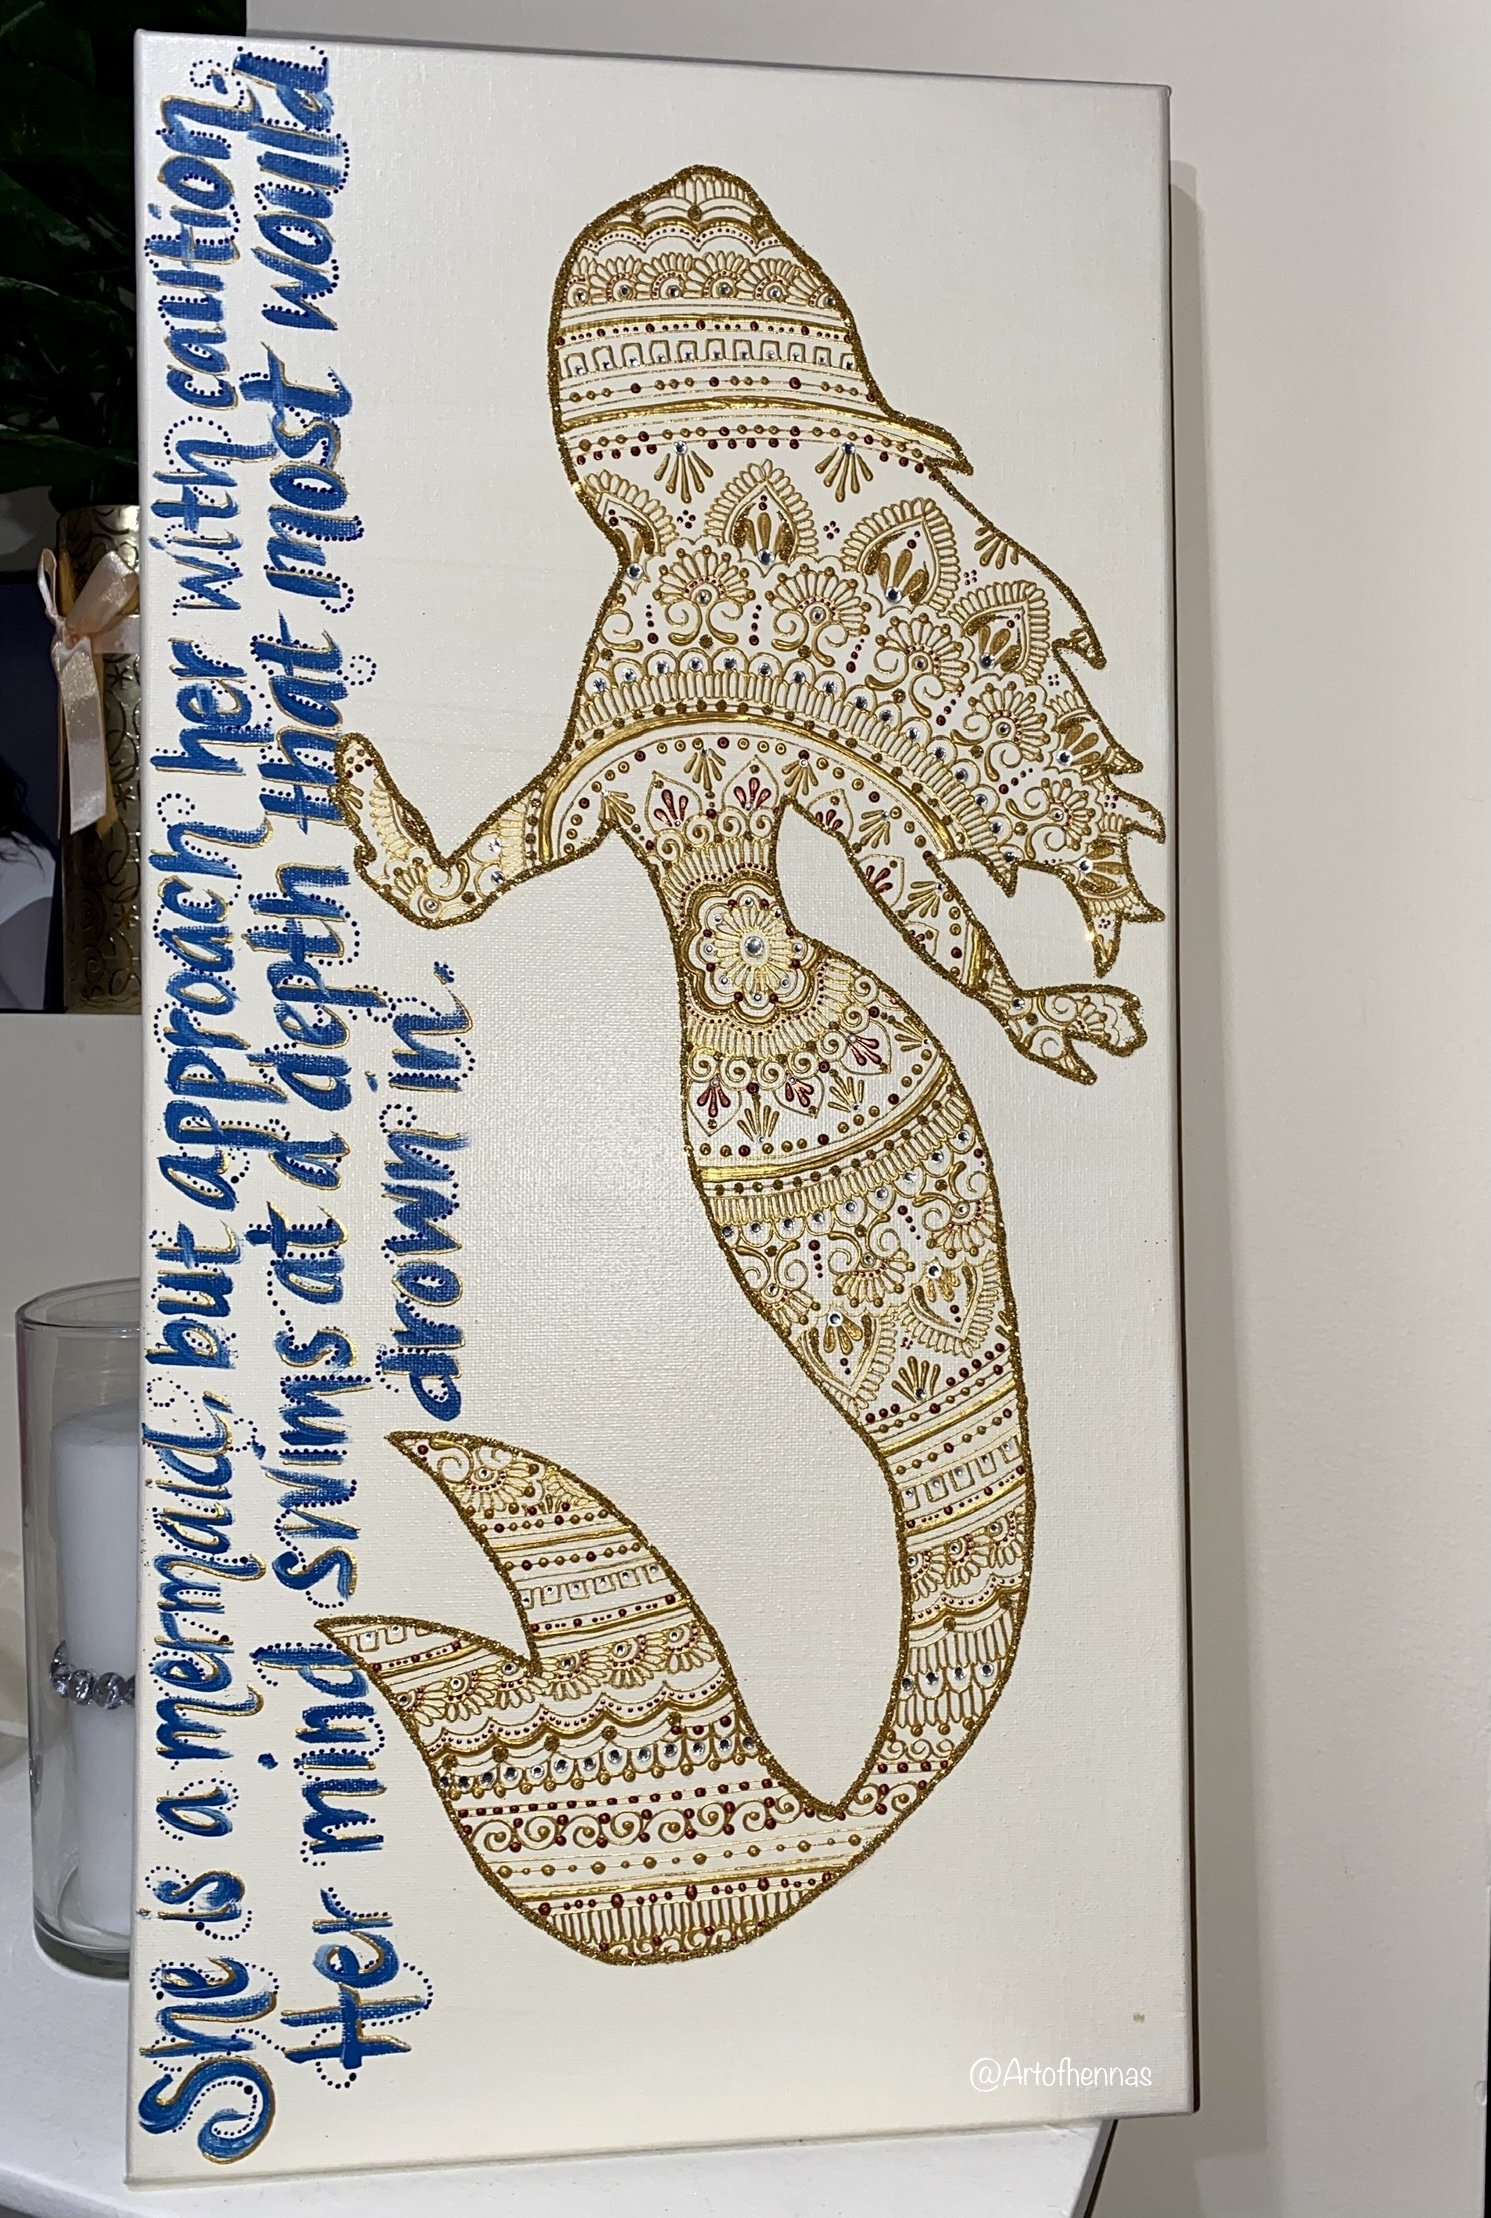 She is a mermaid, but approach her with caution.
Her mind swims at a depth that most would
drown in.
@Artofhennas